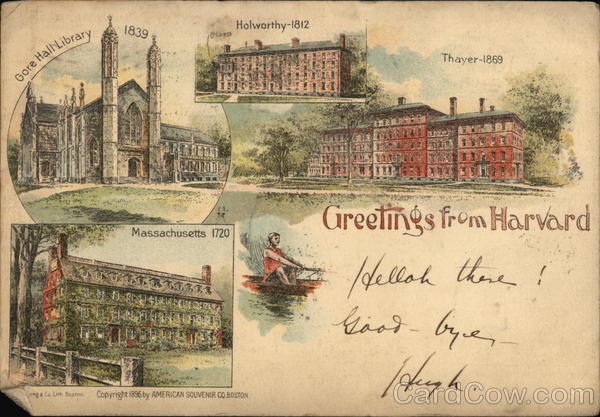 Gore Hall-Library
1839
Holworthy-1812
Thayer-1869
Greetings from Harvard
Massachusetts 1720
Helloh there!
Good-bye,
Hugh
& Co. Lith. Boston.
Copyright 1896 by AMERICAN SOUVENIR CO. BOSTON.
CardCow.com